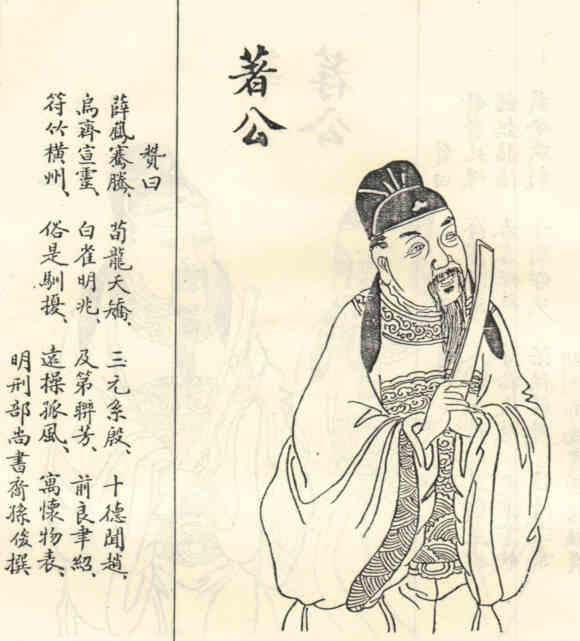 著公
贊曰
薛鳳騫騰、荀龍天矯、三元系殷、十德聞趙、
烏齊宣靈、白雀明兆、及第聨芳、前良聿紹、
符竹橫州、俗是馴擾、遠操孤風、寓懷物表、
明刑部尚書裔孫俊撰